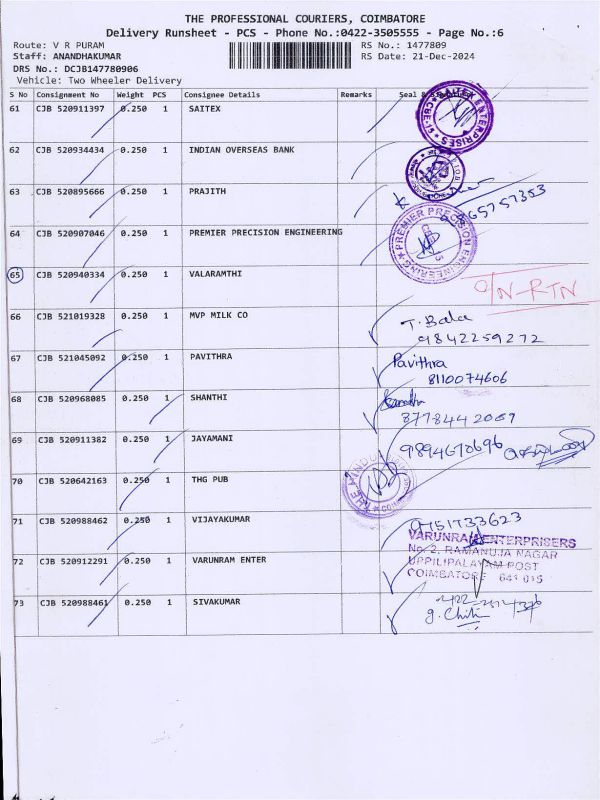 THE PROFESSIONAL COURIERS, COIMBATORE
Delivery Runsheet - PCS - Phone No.:0422-3505555 - Page No.:6
Route: V R PURAM
RS No.: 1477809
Staff: ANANDHAKUMAR
RS Date: 21-Dec-2024
DRS No.: DCJB147780906
Vehicle: Two Wheeler Delivery
S No Consignment No Weight PCS Consignee Details Remarks Seal &
61 CJB 520911397 0.250 1 SAITEX
62 CJB 520934434 0.250 1 INDIAN OVERSEAS BANK
63 CJB 520895666 0.250 1 PRAJITH
64 CJB 520907046 0.250 1 PREMIER PRECISION ENGINEERING
PREMIER PRECISION ENGINEERING
65 CJB 520940334 0.250 1 VALARAMTHI
O/N-RTN
66 CJB 521019328 0.250 1 MVP MILK CO
T. Bala
9842259272
67 CJB 521045092 0.250 1 PAVITHRA
Pavithra
8110074606
68 CJB 520968085 0.250 1 SHANTHI
69 CJB 520911382 0.250 1 JAYAMANI
9894670696
70 CJB 520642163 0.250 1 THG PUB
71 CJB 520988462 0.250 1 VIJAYAKUMAR
9751733623
72 CJB 520912291 0.250 1 VARUNRAM ENTER
VARUNRAM ENTERPRISERS
No. 2, RAMANUJA NAGAR
UPPILIPALAYAM POST
COIMBATORE 641 015
73 CJB 520988461 0.250 1 SIVAKUMAR